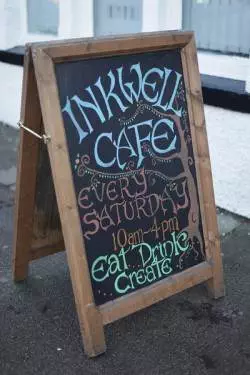 INKWELL
CAFE
EVERY
SATURDAY
10am-4pm
Eat Drink
Create